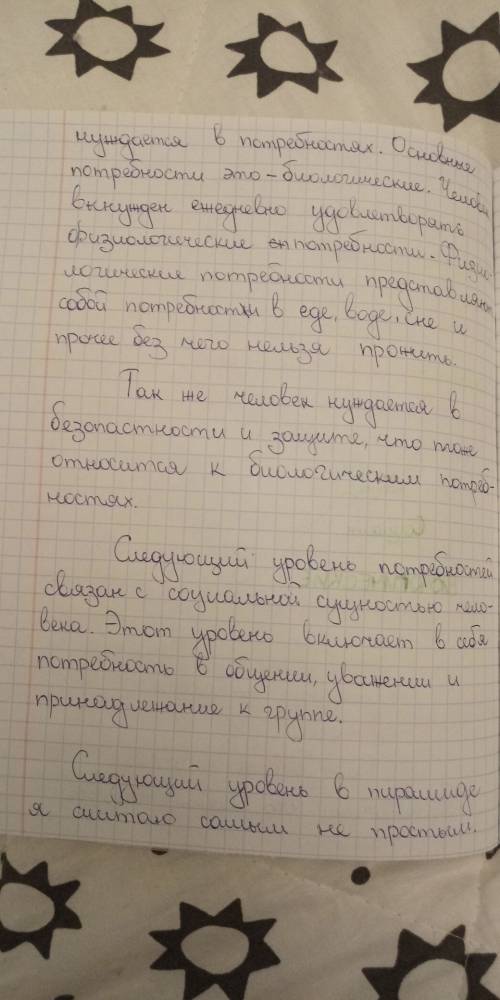 нуждается в потребностях. Основные
потребности это - биологические. Человек
вынужден ежедневно удовлетворять
физиологические потребности. Физио-
логические потребности представляют
собой потребности в еде, воде, сне и
прочее без чего нельзя прожить.
Так же человек нуждается в
безопастности и защите, что тоже
относится к биологическим потреб-
ностях.
Следующий уровень потребностей
связан с социальной сущностью чело-
века. Этот уровень включает в себя
потребность в общении, уважении и
принадлежание к группе.
Следующий уровень в пирамиде
я считаю самым не простым.